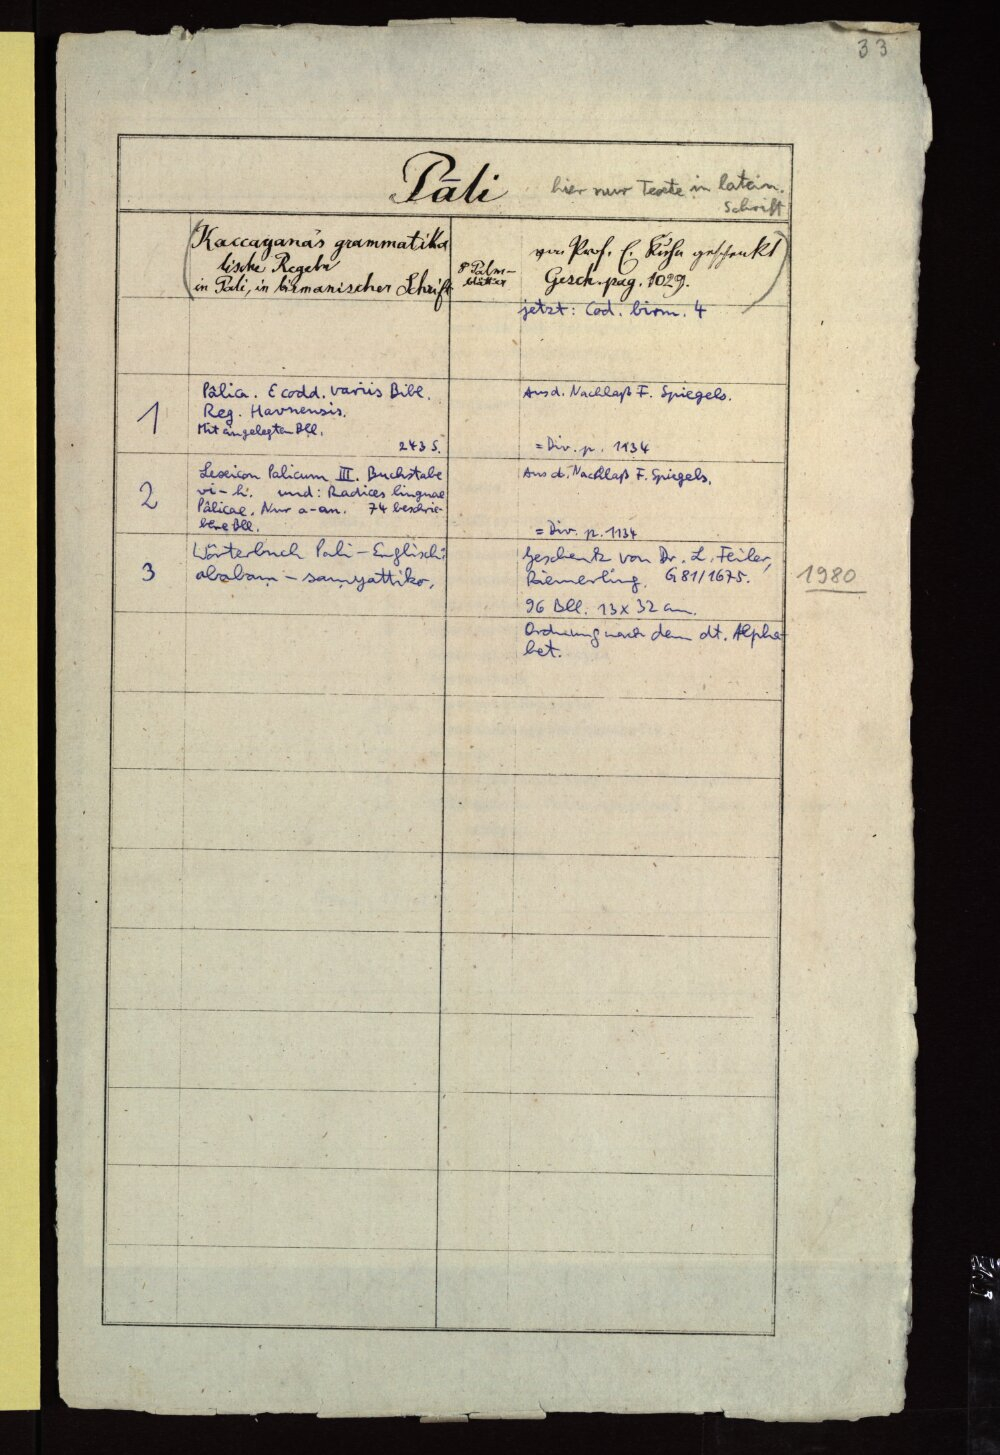 33
Pāli
hier nur Texte in latein.
Schrift
(Kaccayana's grammatika
lische Regeln
in Pali, in birmanischer Schrift
8 Palm-
blätter
von Prof. E. Kuhn geschenkt)
Gesch. pag. 1029.
jetzt: Cod. birm. 4
1
Pâlica. E codd. variis Bibl.
Reg. Havnensis.
Mit eingelegten Bll.
243 S.
Aus d. Nachlaß F. Spiegels.
= Div. p. 1134
2
Lexicon Palicum III. Buchstabe
vi - h. und: Radices linguae
Pâlicae. Nur a-an. 74 beschrie-
bene Bll.
Aus d. Nachlaß F. Spiegels.
= Div. p. 1134
3
Wörterbuch Pali - Englisch:
ababam - samyattiko.
Geschenk von Dr. L. Feiler,
Riemerling. G81/1675.
96 Bll. 13 x 32 cm.
Ordnung nach dem dt. Alpha-
bet.
1980